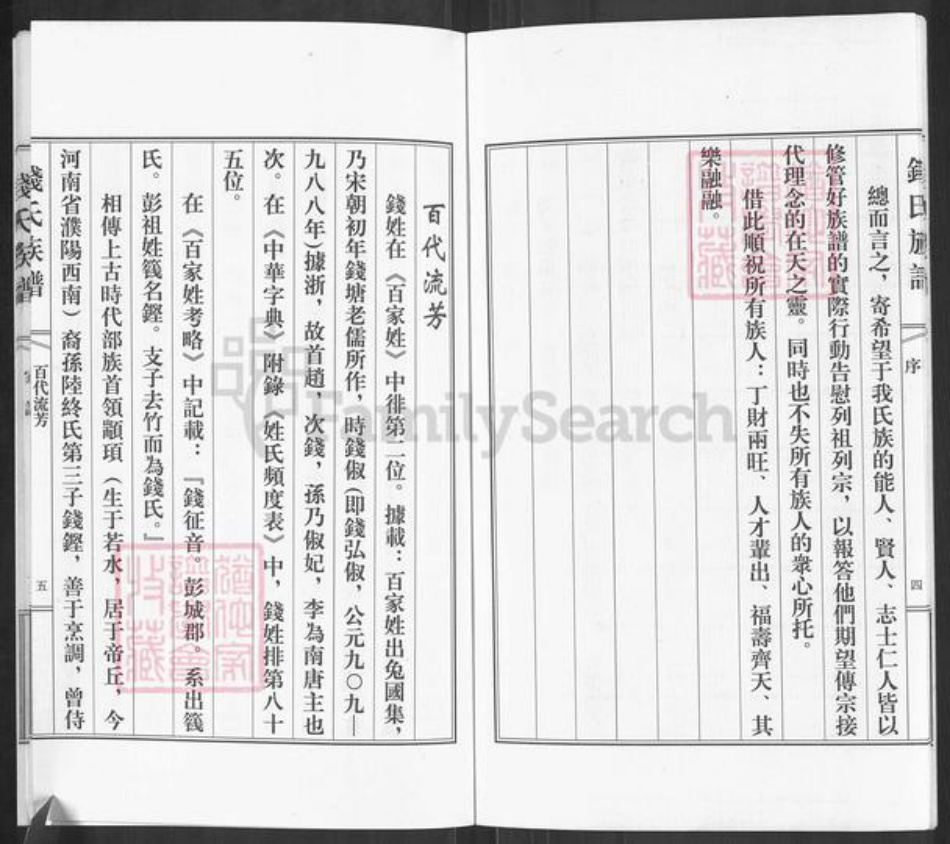 錢氏族譜
序
四
總而言之，寄希望于我氏族的能人、賢人、志士仁人皆以
修管好族譜的實際行動告慰列祖列宗，以報答他們期望傳宗接
代理念的在天之靈。同時也不失所有族人的衆心所托。
借此順祝所有族人：丁財兩旺、人才輩出、福壽齊天、其
樂融融。
百代流芳
錢姓在《百家姓》中徘第二位。據載：百家姓出兔國集，
乃宋朝初年錢塘老儒所作，時錢俶(即錢弘俶，公元九〇九—
九八八年)據浙，故首趙，次錢，孫乃俶妃，李為南唐主也
次。在《中華字典》附錄《姓氏頻度表》中，錢姓排第八十
五位。
在《百家姓考略》中記載：『錢征音。彭城郡。系出籛
氏。彭祖姓籛名鏗。支子去竹而為錢氏。』
相傳上古時代部族首領顓頊（生于若水，居于帝丘，今
河南省濮陽西南）裔孫陸終氏第三子錢鏗，善于烹調，曾侍
錢氏族譜
百代流芳
五
FamilySearch